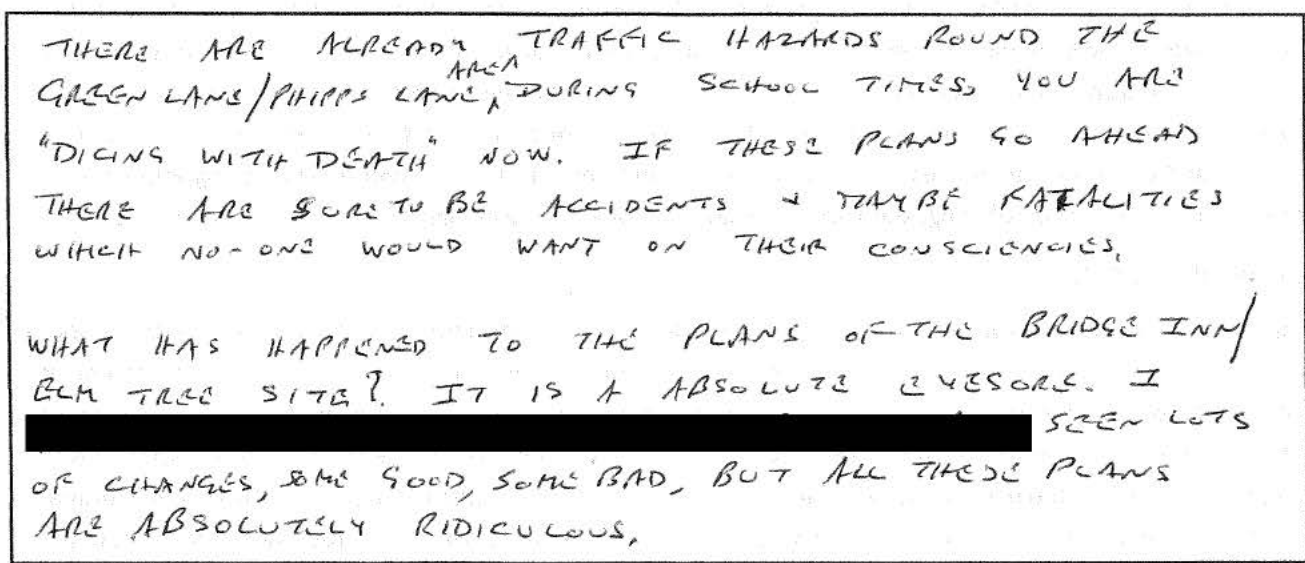 THERE ARE ALREADY TRAFFIC HAZARDS ROUND THE
GREEN LANE/PHIPPS LANE AREA, DURING SCHOOL TIMES, YOU ARE
"DICING WITH DEATH" NOW. IF THESE PLANS GO AHEAD
THERE ARE SURE TO BE ACCIDENTS & MAYBE FATALITIES
WHICH NO-ONE WOULD WANT ON THEIR CONSCIENCIES.
WHAT HAS HAPPENED TO THE PLANS OF THE BRIDGE INN/
ELM TREE SITE? IT IS A ABSOLUTE EYESORE. I
SEEN LOTS
OF CHANGES, SOME GOOD, SOME BAD, BUT ALL THESE PLANS
ARE ABSOLUTELY RIDICULOUS.